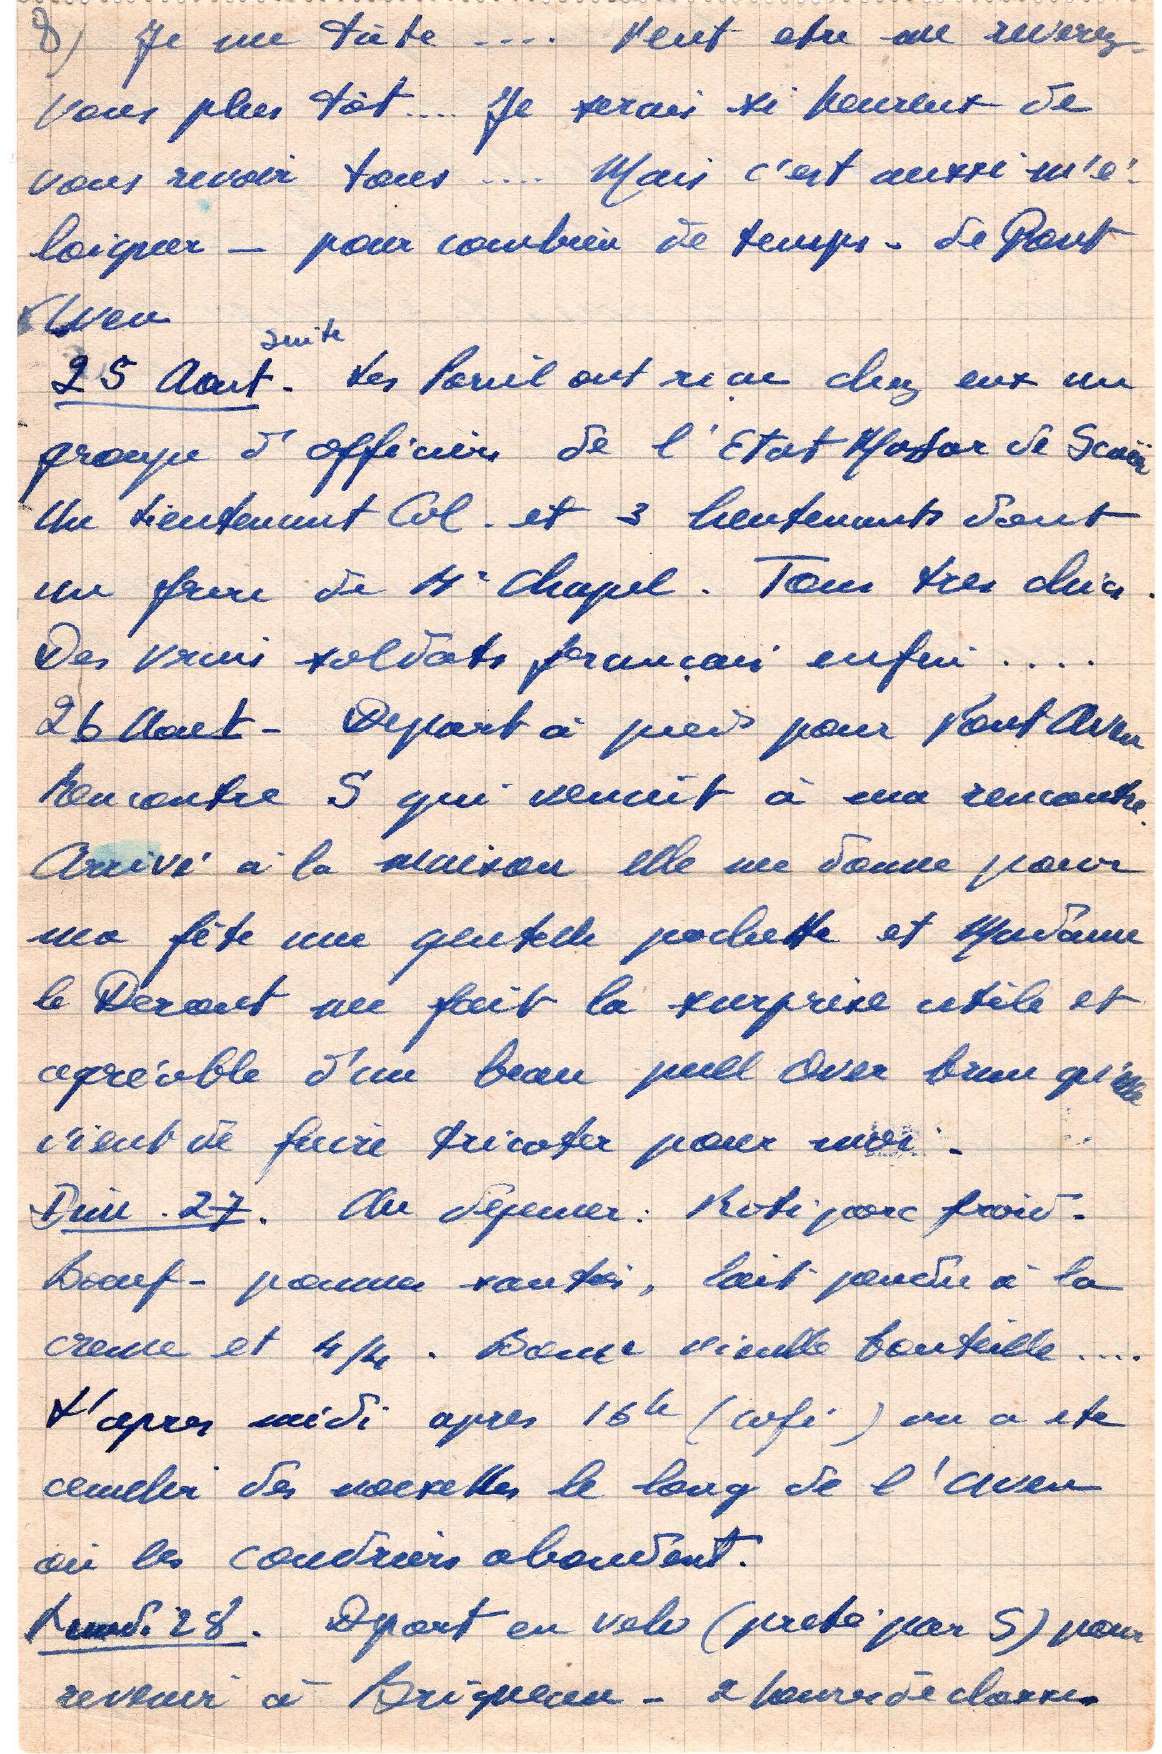 8) Je me tâte .... Peut etre me reverez-
vous plus tôt.... Je serais si heureux de
vous revoir tous .... Mais c'est aussi m'é-
loigner — pour combien de temps - de Pont
Aven
25 Aout - suite Les Poruil ont reçu chez eux un
groupe d'officiers de l'Etat Major de Scaër
Un Lieutenant Col. et 3 lieutenants dont
un frere de Mr Chapel. Tous tres chics.
Des vrais soldats français enfin ....
26 Aout - Depart à pied pour Pont Aven
Rencontre S qui venait à ma rencontre.
Arrivé à la maison elle me donne pour
ma fête une gentille pochette et Madame
le Derout me fait la surprise utile et
agréable d'un beau pull over brun qu'elle
vient de faire tricoter pour moi.
Dim. 27. Au dejeuner : Roti porc froid -
Boeuf - pomme sautées, lait à la
creme et 4/4. Bonne vieille bouteille ....
L'apres midi apres 16h (café) on a ete
cueillir des noisettes le long de l'Aven
où les coudriers abondent.
Lundi 28. Depart en velo (preté par S) pour
revenir à - 2 heures de classes